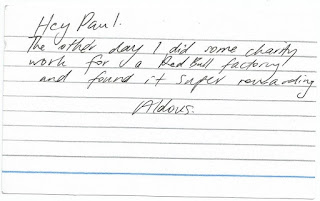 Hey Paul.
The other day I did some charity
work for a Red Bull factory
and found it super rewarding
Aldous.